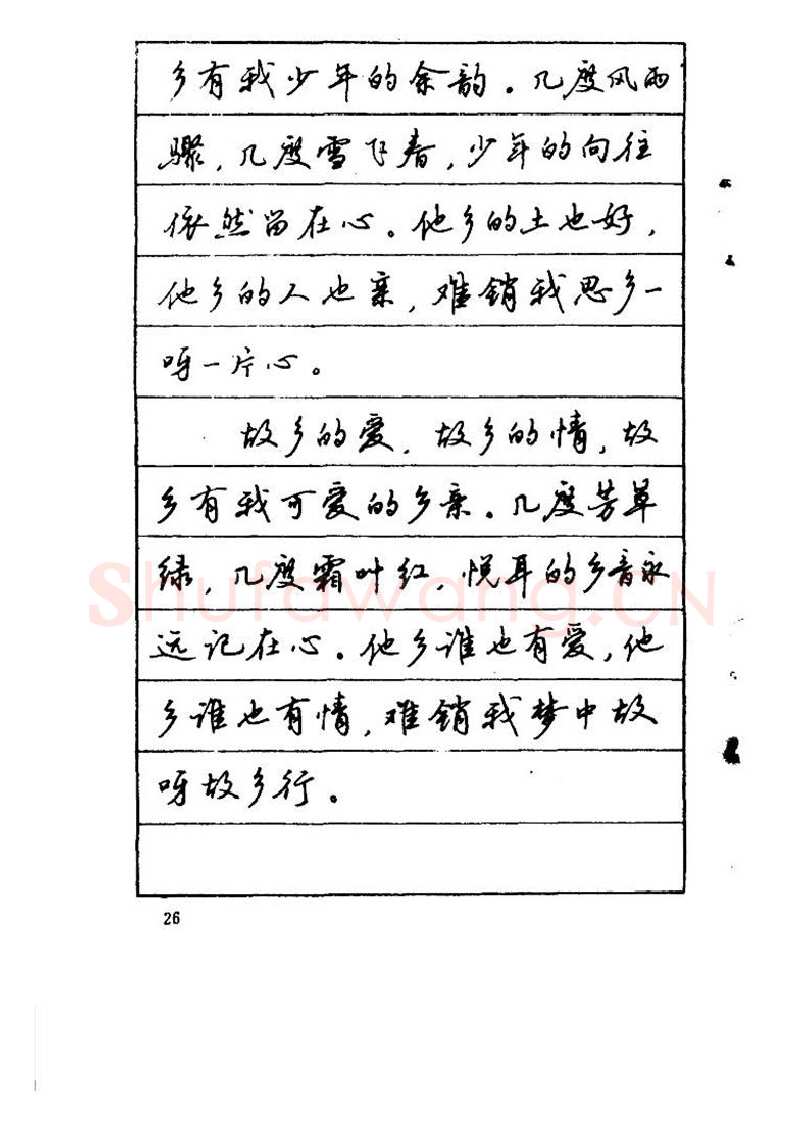 乡有我少年的余韵。几度风雨
骤，几度雪飞春，少年的向往
依然留在心。他乡的土也好，
他乡的人也亲，难销我思乡一
呀一片心。
故乡的爱，故乡的情，故
乡有我可爱的乡亲。几度芳草
绿，几度霜叶红，悦耳的乡音永
远记在心。他乡谁也有爱，他
乡谁也有情，难销我梦中故
呀故乡行。
26
Shufawang.CN